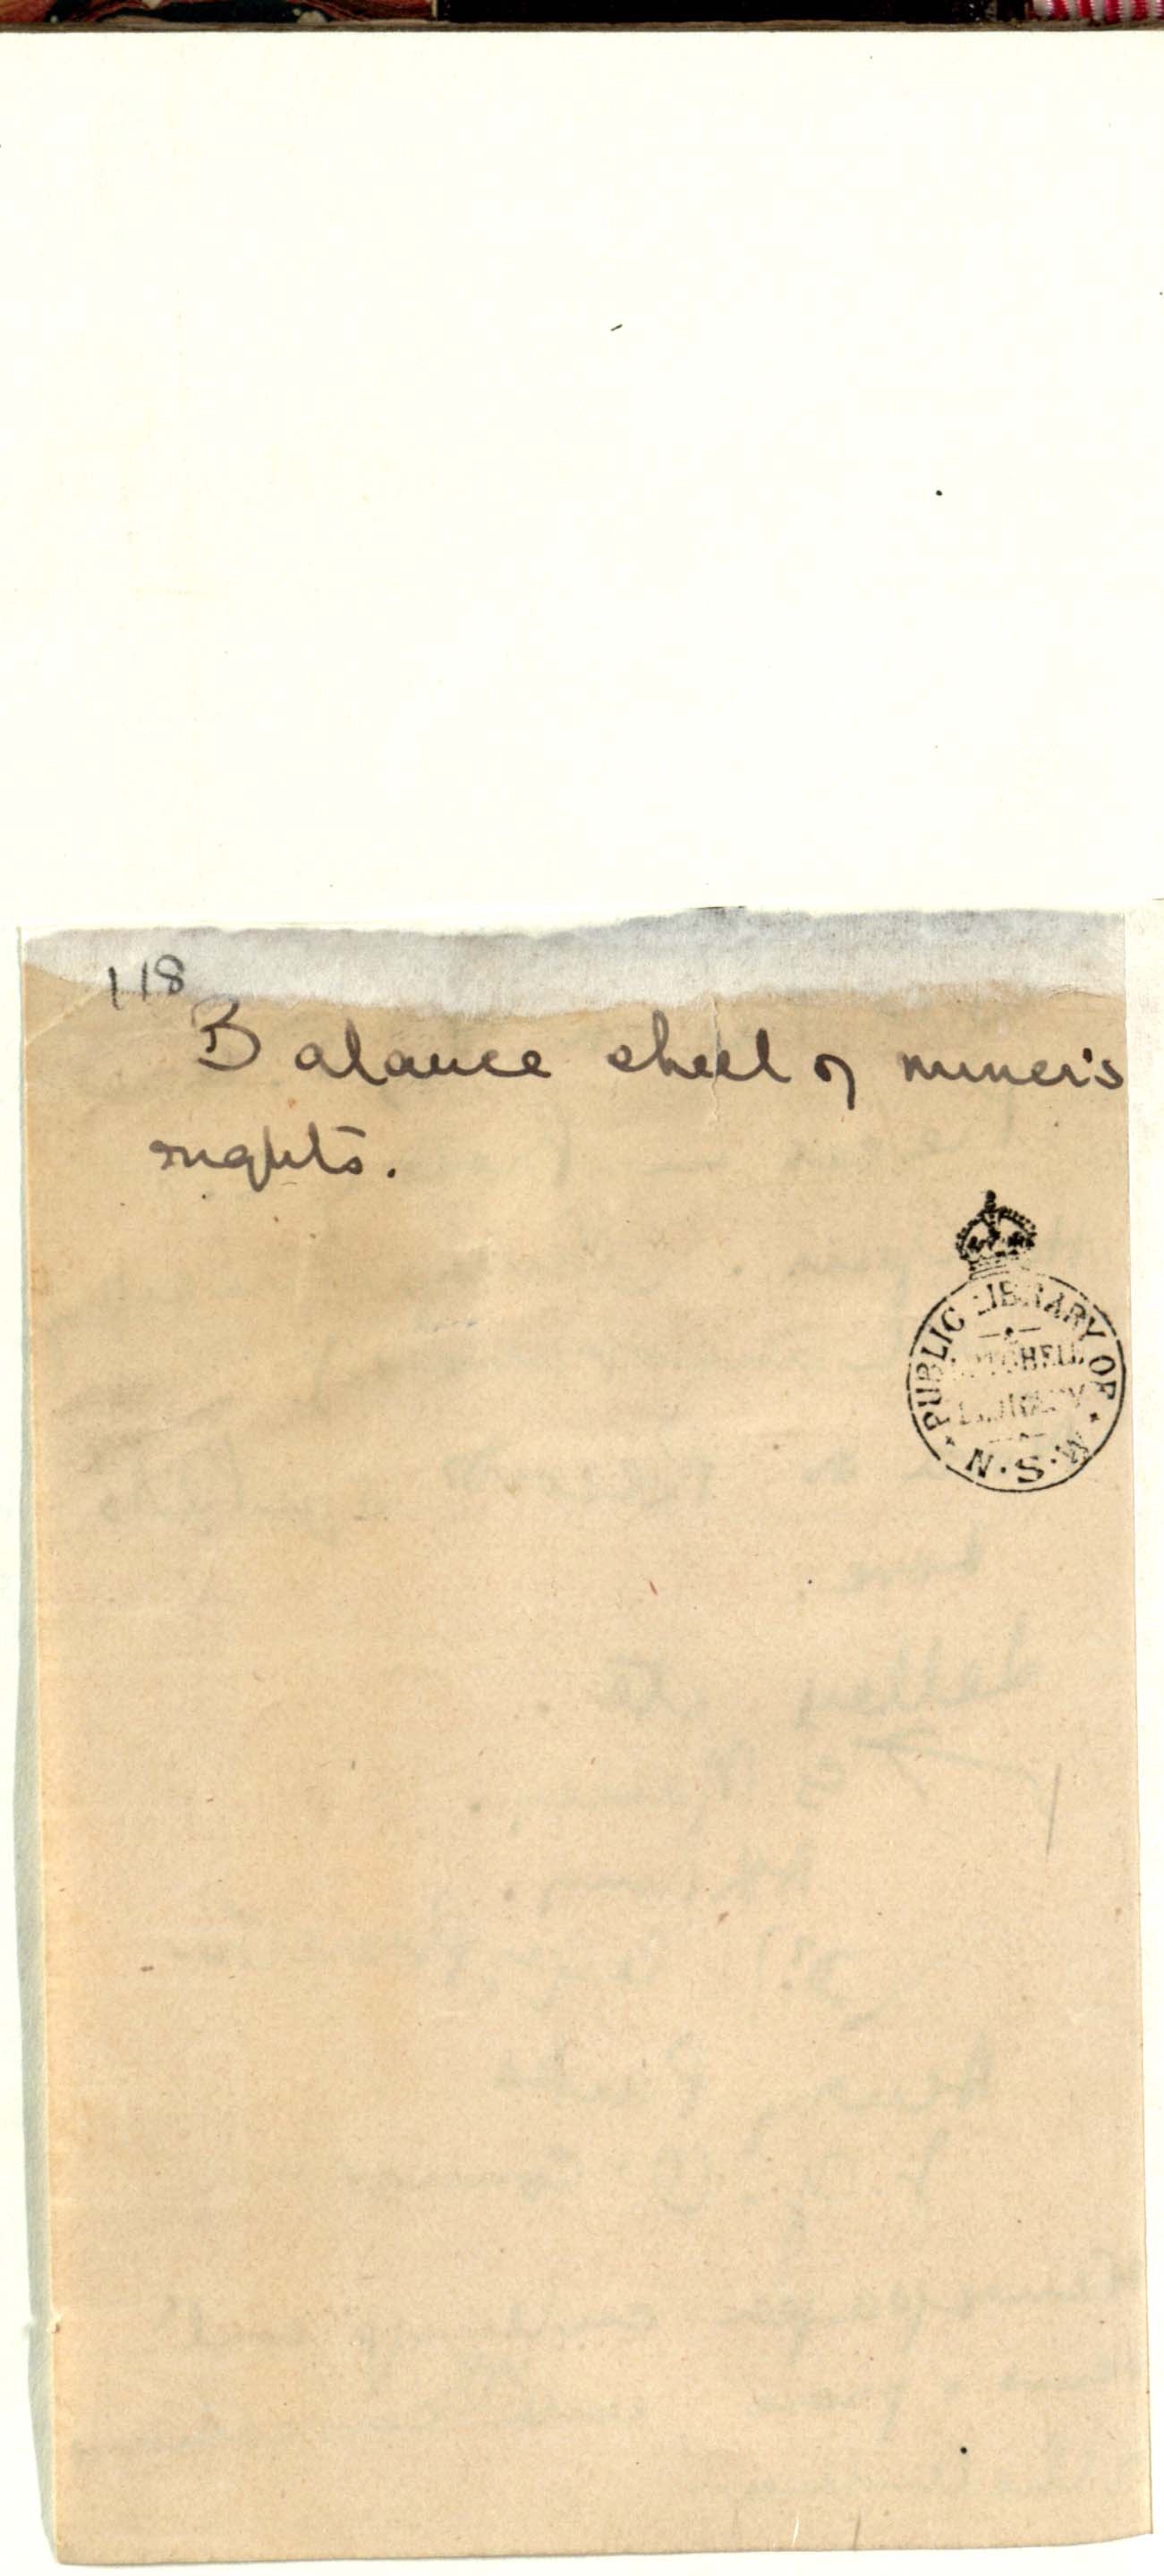 118
Balance sheet of miner's
rights.
PUBLIC LIBRARY OF N.S.W.
MITCHELL
LIBRARY